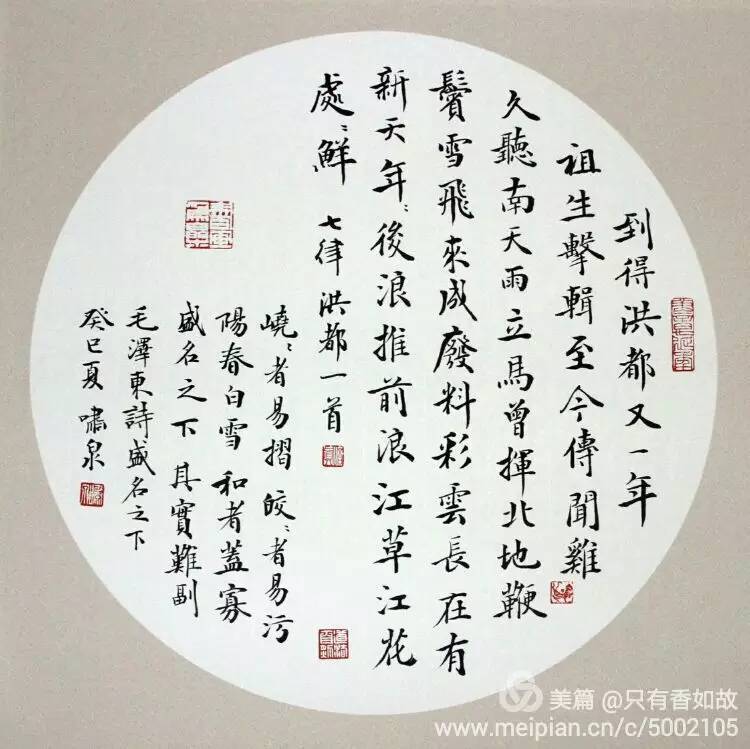 到得洪都又一年
祖生擊輯至今傳聞雞
久聽南天雨立馬曾揮北地鞭
鬢雪飛來成廢料彩雲長在有
新天年〻後浪推前浪江草江花
處〻鮮 七律 洪都一首
嶢〻者易摺 皎〻者易污
陽春白雪 和者蓋寡
盛名之下 其實難副
毛澤東詩盛名之下
癸巳夏 嘯泉
美篇 @只有香如故
www.meipian.cn/c/5002105